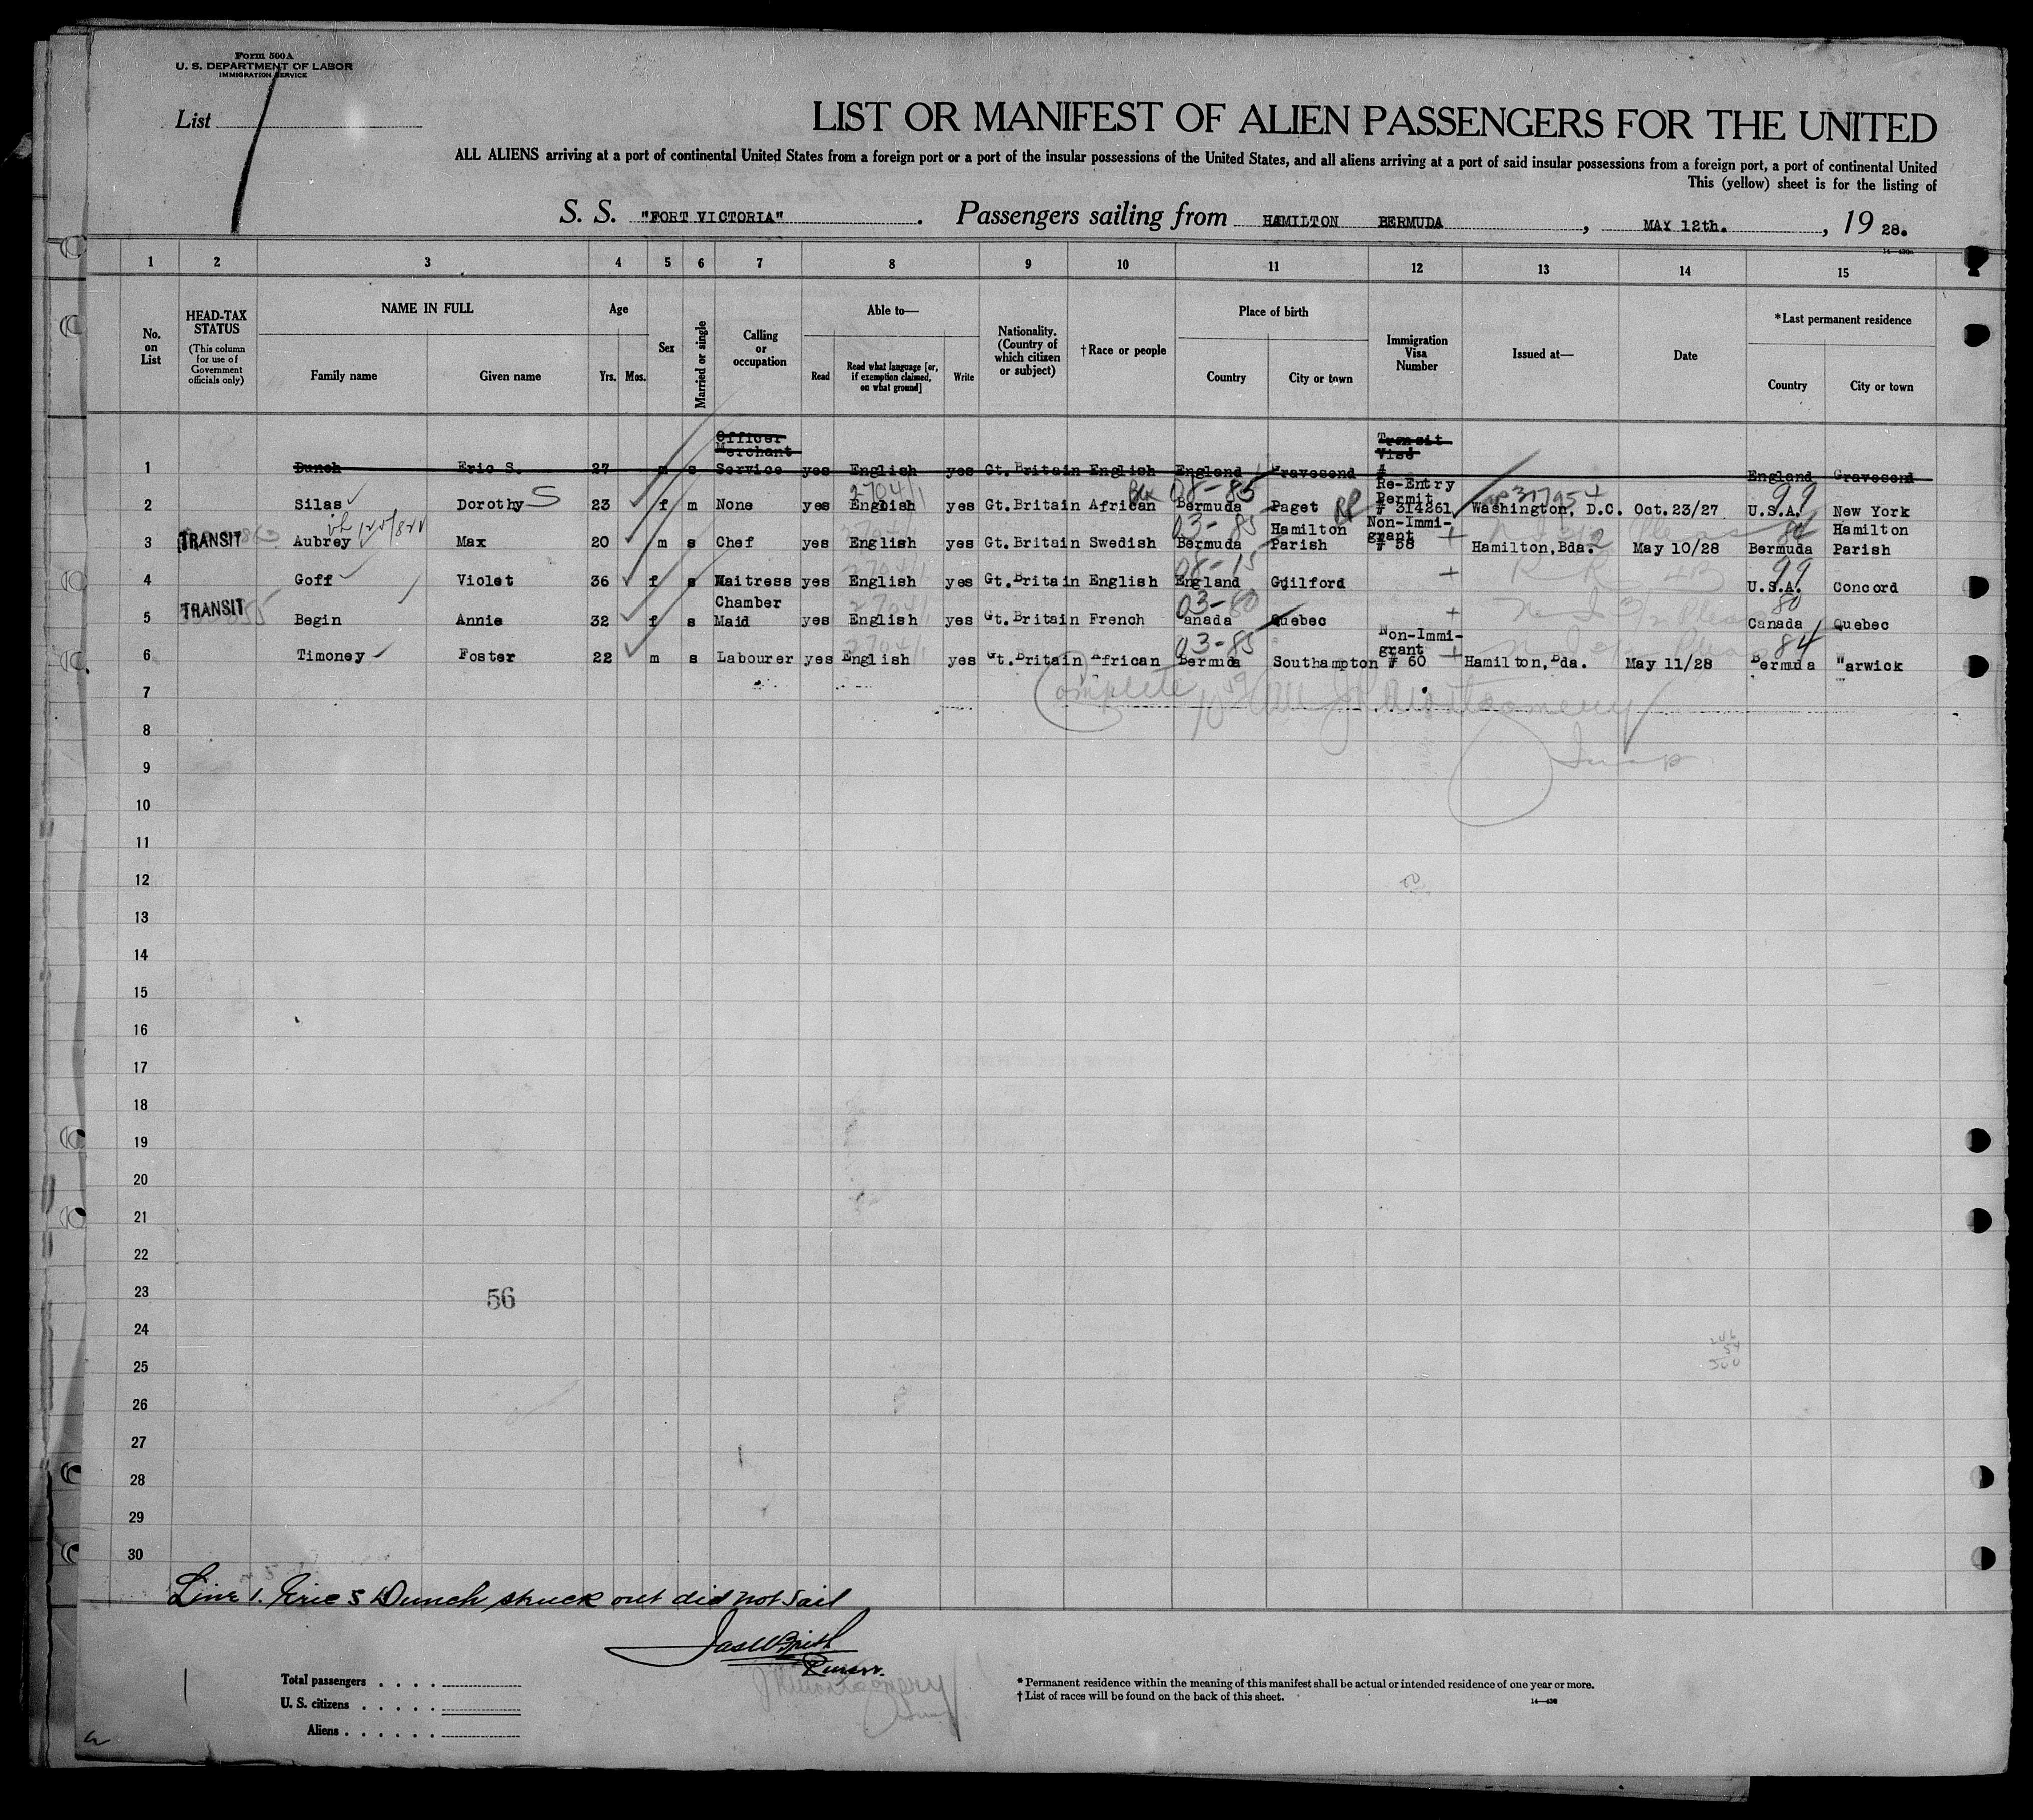 Form 500A
U. S. DEPARTMENT OF LABOR
IMMIGRATION SERVICE
List
LIST OR MANIFEST OF ALIEN PASSENGERS FOR THE UNITED
ALL ALIENS arriving at a port of continental United States from a foreign port or a port of the insular possessions of the United States, and all aliens arriving at a port of said insular possessions from a foreign port, a port of continental United
This (yellow) sheet is for the listing of
S. S. "FORT VICTORIA". Passengers sailing from HAMILTON BERMUDA, MAY 12th., 19 28.
1 2 3 4 5 6 7 8 9 10 11 12 13 14 15
No. on List
HEAD-TAX STATUS (This column for use of Government officials only)
NAME IN FULL
Family name Given name
Age
Yrs. Mos.
Sex
Married or single
Calling or occupation
Able to—
Read Read what language [or, if exemption claimed, on what ground] Write
Nationality. (Country of which citizen or subject)
†Race or people
Place of birth
Country City or town
Immigration Visa Number
Issued at—
Date
*Last permanent residence
Country City or town
Officer Merchant Transit Visé
1 Dunch Eric S. 27 m s Service yes English yes Gt.Britain English England Gravesend # England Gravesend
2704/1 Blk 08-85 Re-Entry Permit 99
2 Silas Dorothy S 23 f m None yes English yes Gt.Britain African Bermuda Paget # 314261 Washington, D.C. Oct.23/27 U.S.A. New York
03-85 Hamilton Non-Immigrant 84 Hamilton
TRANSIT
3 Aubrey Max 20 m s Chef yes English yes Gt.Britain Swedish Bermuda Parish # 58 Hamilton,Bda. May 10/28 Bermuda Parish
2704/1 08-15 99
4 Goff Violet 36 f s Waitress yes English yes Gt.Britain English England Guilford U.S.A. Concord
TRANSIT Chamber 2704/1 03-80 80
5 Begin Annie 32 f s Maid yes English yes Gt.Britain French Canada Quebec Canada Quebec
2704/1 03-85 Non-Immigrant 84
6 Timoney Foster 22 m s Labourer yes English yes Gt.Britain African Bermuda Southampton # 60 Hamilton,Bda. May 11/28 Bermuda Warwick
Complete Montgomery
7
8
Insp
9
10
11
12
13
14
15
16
17
18
19
20
21
22
23
56
24
25
26
27
28
29
30
Line 1. Eric S Dunch struck out did not sail
Purser.
Total passengers . . . .
U. S. citizens . . . . .
Aliens . . . . . .
Montgomery
*Permanent residence within the meaning of this manifest shall be actual or intended residence of one year or more.
†List of races will be found on the back of this sheet.
14—430